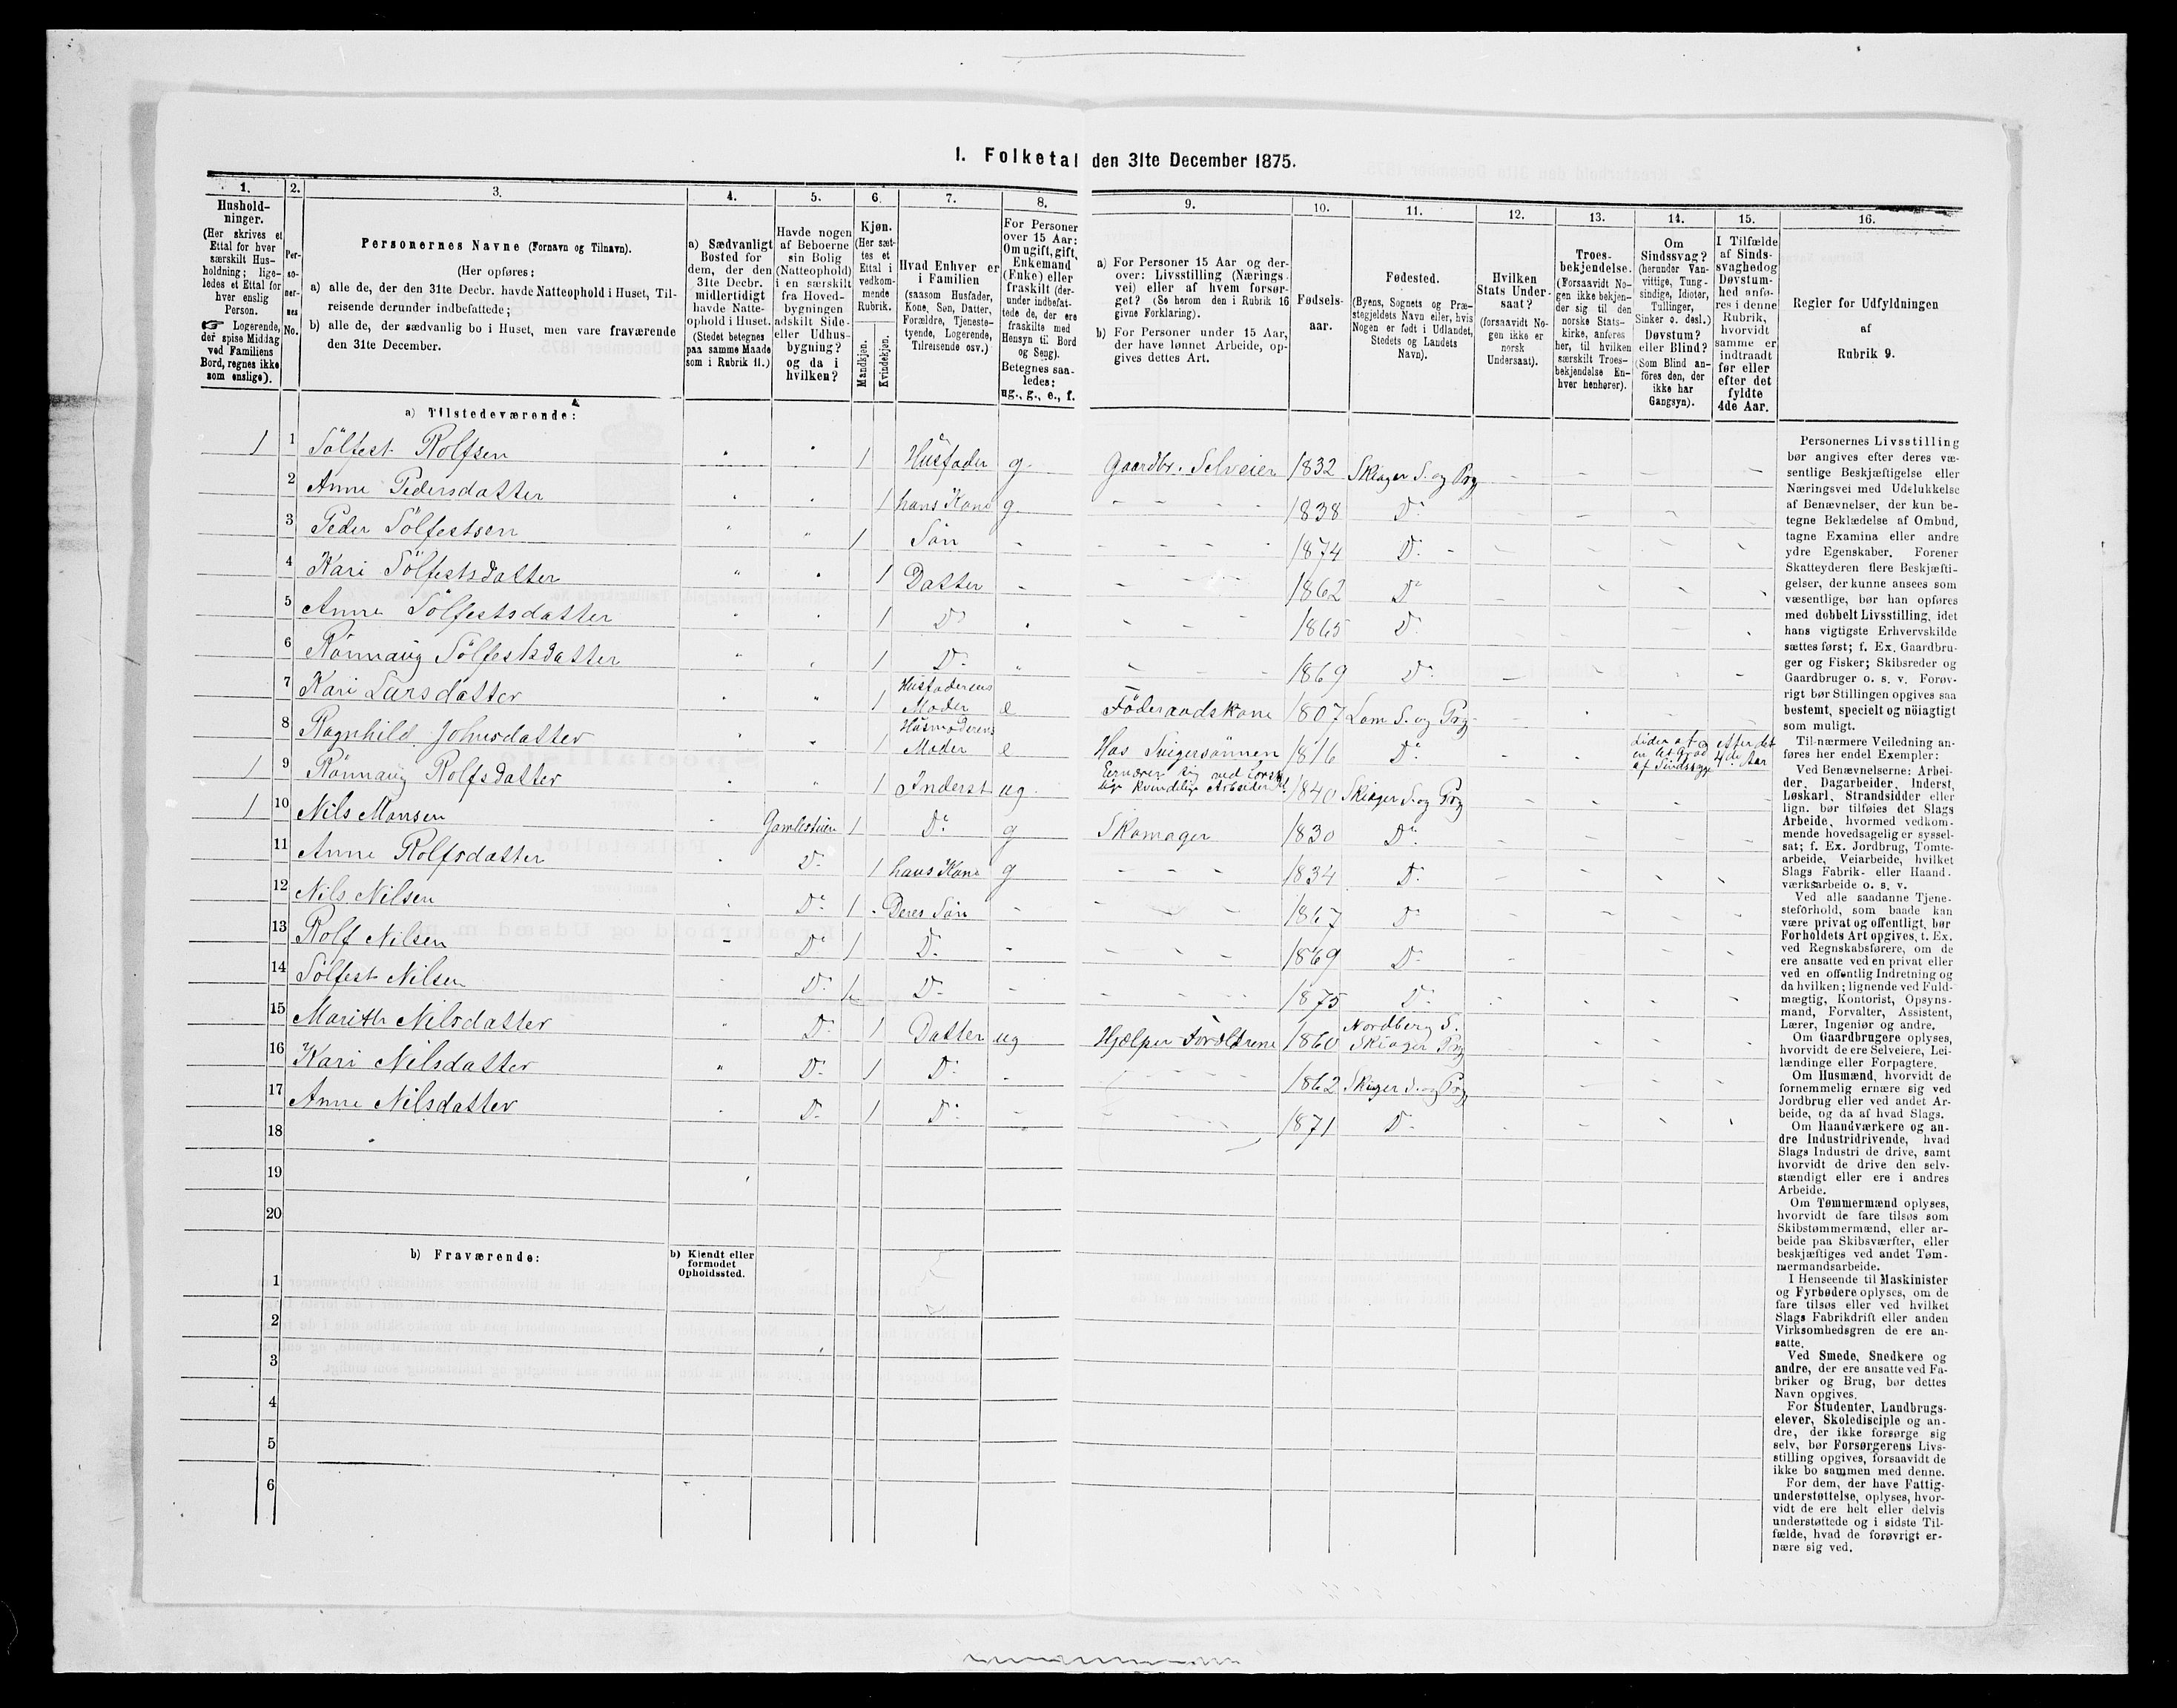 1. Folketal den 31te December 1875.
1. 2. 3. 4. 5. 6. 7. 8. 9. 10. 11. 12. 13. 14. 15. 16.
Hushold-
ninger.
(Her skrives et
Ettal for hver
særskilt Hus-
holdning; lige-
ledes et Ettal for
hver enslig
Person.
☞ Logerende,
der spise Middag
ved Familiens
Bord, regnes ikke
som enslige).
Per-
so-
ner-
nes
No.
Personernes Navne (Fornavn og Tilnavn).
(Her opføres:
a) alle de, der den 31te Decbr. havde Natteophold i Huset, Til-
reisende derunder indbefattede;
b) alle de, der sædvanlig bo i Huset, men vare fraværende
den 31te December.
a) Sædvanligt
Bosted for
dem, der den
31te Decbr.
midlertidigt
havde Natte-
ophold i Huset.
(Stedet betegnes
paa samme Maade
som i Rubrik 11.)
Havde nogen
af Beboerne
sin Bolig
(Natteophold)
i en særskilt
fra Hoved-
bygningen
adskilt Side-
eller Udhus-
bygning?
og da i
hvilken?
Kjøn.
(Her sæt-
tes et
Ettal i
vedkom-
mende
Rubrik.
Mandkjøn.
Kvindekjøn.
Hvad Enhver er
i Familien
(saasom Husfader,
Kone, Søn, Datter,
Forældre, Tjeneste-
tyende, Logerende,
Tilreisende osv.)
For Personer
over 15 Aar:
Om ugift, gift,
Enkemand
(Enke) eller
fraskilt (der-
under indbefat-
tede de, der ere
fraskilte med
Hensyn til Bord
og Seng).
Betegnes saa-
ledes:
ug., g., e., f.
a) For Personer 15 Aar og der-
over: Livsstilling (Nærings-
vei) eller af hvem forsør-
get? (Se herom den i Rubrik 16
givne Forklaring).
b) For Personer under 15 Aar,
der have lønnet Arbeide, op-
gives dettes Art.
Fødsels-
aar.
Fødested.
(Byens, Sognets og Præ-
stegjeldets Navn eller, hvis
Nogen er født i Udlandet,
Stedets og Landets
Navn).
Hvilken
Stats Under-
saat?
(forsaavidt No-
gen ikke er
norsk
Undersaat).
Troes-
bekjendelse.
(Forsaavidt No-
gen ikke bekjen-
der sig til den
norske Stats-
kirke, anføres
her, til hvilken
særskilt Troes-
bekjendelse En-
hver henhører).
Om
Sindssvag?
(herunder Van-
vittige, Tung-
sindige, Idioter,
Tullinger,
Sinker o. desl.)
Døvstum?
eller Blind?
(Som Blind an-
föres den, der
ikke har
Gangsyn).
I Tilfælde
af Sinds-
svaghed og
Døvstum-
hed anfø-
res i denne
Rubrik,
hvorvidt
samme er
indtraadt
før eller
efter det
fyldte
4de Aar.
Regler for Udfyldningen
af
Rubrik 9.
a) Tilstedeværende:
1 1 Sölfest Rolfsen 1 Husfader g Gaardbr. Selveier 1832 Skiager S. og Prg
2 Anne Pedersdatter 1 hans Kone g 1838 Do
3 Peder Sölfestsen 1 Sön 1874 Do
4 Kari Sölfestsdatter 1 Datter 1862 Do
5 Anne Sölfestsdatter 1 Do 1865 Do
6 Rönnaug Sölfestsdatter 1 Do 1869 Do
7 Kari Larsdatter 1 Husfaderens Moder e Föderaadskone 1807 Lom S. og Prg
8 Ragnhild Johnsdatter 1 Husmoderens Moder e Hos Svigersönnen 1816 Do Lider af en let Grad af Sindssyge efter det 4de Aar
1 9 Rönnaug Rolfsdatter 1 Inderst ug Ernærer sig ved kvindelige Arbeider 1840 Skiager S. og Prg
1 10 Nils Monsen 1 Do g Skomager 1830 Do
11 Anne Rolfsdatter Do 1 hans Kone g 1834 Do
12 Nils Nilsen Do 1 Deres Sön 1867 Do
13 Rolf Nilsen Do 1 Do 1869 Do
14 Sölfest Nilsen Do 1 Do 1875 Do
15 Marith Nilsdatter Do 1 Datter ug Hjælper Forældrene 1860 Nordberg S. Skiager Prg
16 Kari Nilsdatter Do 1 Do 1862 Skiager S. og Prg
17 Anne Nilsdatter Do 1 Do 1871 Do
18
19
20
b) Fraværende:
b) Kjendt eller
formodet
Opholdssted.
1
2
3
4
5
6
Personernes Livsstilling
bør angives efter deres væ-
sentlige Beskjæftigelse eller
Næringsvei med Udelukkelse
af Benævnelser, der kun be-
tegne Beklædelse af Ombud,
tagne Examina eller andre
ydre Egenskaber. Forener
Skatteyderen flere Beskjæfti-
gelser, der kunne ansees som
væsentlige, bør han opføres
med dobbelt Livsstilling, idet
hans vigtigste Erhvervskilde
sættes først; f. Ex. Gaardbru-
ger og Fisker; Skibsreder og
Gaardbruger o. s. v. Forøv-
rigt bør Stillingen opgives saa
bestemt, specielt og nöiagtigt
som muligt.
Til nærmere Veiledning an-
føres her endel Exempler:
Ved Benævnelserne: Arbei-
der, Dagarbeider, Inderst,
Løskarl, Strandsidder eller
lign. bør tilføies det Slags
Arbeide, hvormed vedkom-
mende hovedsagelig er syssel-
sat; f. Ex. Jordbrug, Tomte-
arbeide, Veiarbeide, hvilket
Slags Fabrik- eller Haand-
værksarbeide o. s. v.
Ved alle saadanne Tjene-
steforhold, som baade kan
være privat og offentligt, bør
Forholdets Art opgives, t. Ex.
ved Regnskabsførere, om de
ere ansatte ved en privat eller
ved en offentlig Indretning og
da hvilken; lignende ved Fuld-
mægtig, Kontorist, Opsyns-
mand, Forvalter, Assistent,
Lærer, Ingeniør og andre.
Om Gaardbrugere oplyses,
hvorvidt de ere Selveiere, Lei-
lændinge eller Forpagtere.
Om Husmænd, hvorvidt de
fornemmelig ernære sig ved
Jordbrug eller ved andet Ar-
beide, og da af hvad Slags.
Om Haandværkere og an-
dre Industridrivende, hvad
Slags Industri de drive, samt
hvorvidt de drive den selv-
stændigt eller ere i andres
Arbeide.
Om Tømmermænd oplyses,
hvorvidt de fare tilsøs som
Skibstømmermænd, eller ar-
beide paa Skibsværfter, eller
beskjæftiges ved andet Tøm-
mermandsarbeide.
I Henseende til Maskinister
og Fyrbødere oplyses, om de
fare tilsøs eller ved hvilket
Slags Fabrikdrift eller anden
Virksomhedsgren de ere an-
satte.
Ved Smede, Snedkere og
andre, der ere ansatte ved Fa-
briker og Brug, bør dettes
Navn opgives.
For Studenter, Landbrugs-
elever, Skoledisciple og an-
dre, der ikke forsørge sig
selv, bør Forsørgerens Livs-
stilling opgives, forsaavidt de
ikke bo sammen med denne.
For dem, der have Fattig-
understøttelse, oplyses, hvor-
vidt de ere helt eller delvis
understøttede og i sidste Til-
fælde, hvad de forøvrigt er-
nære sig ved.